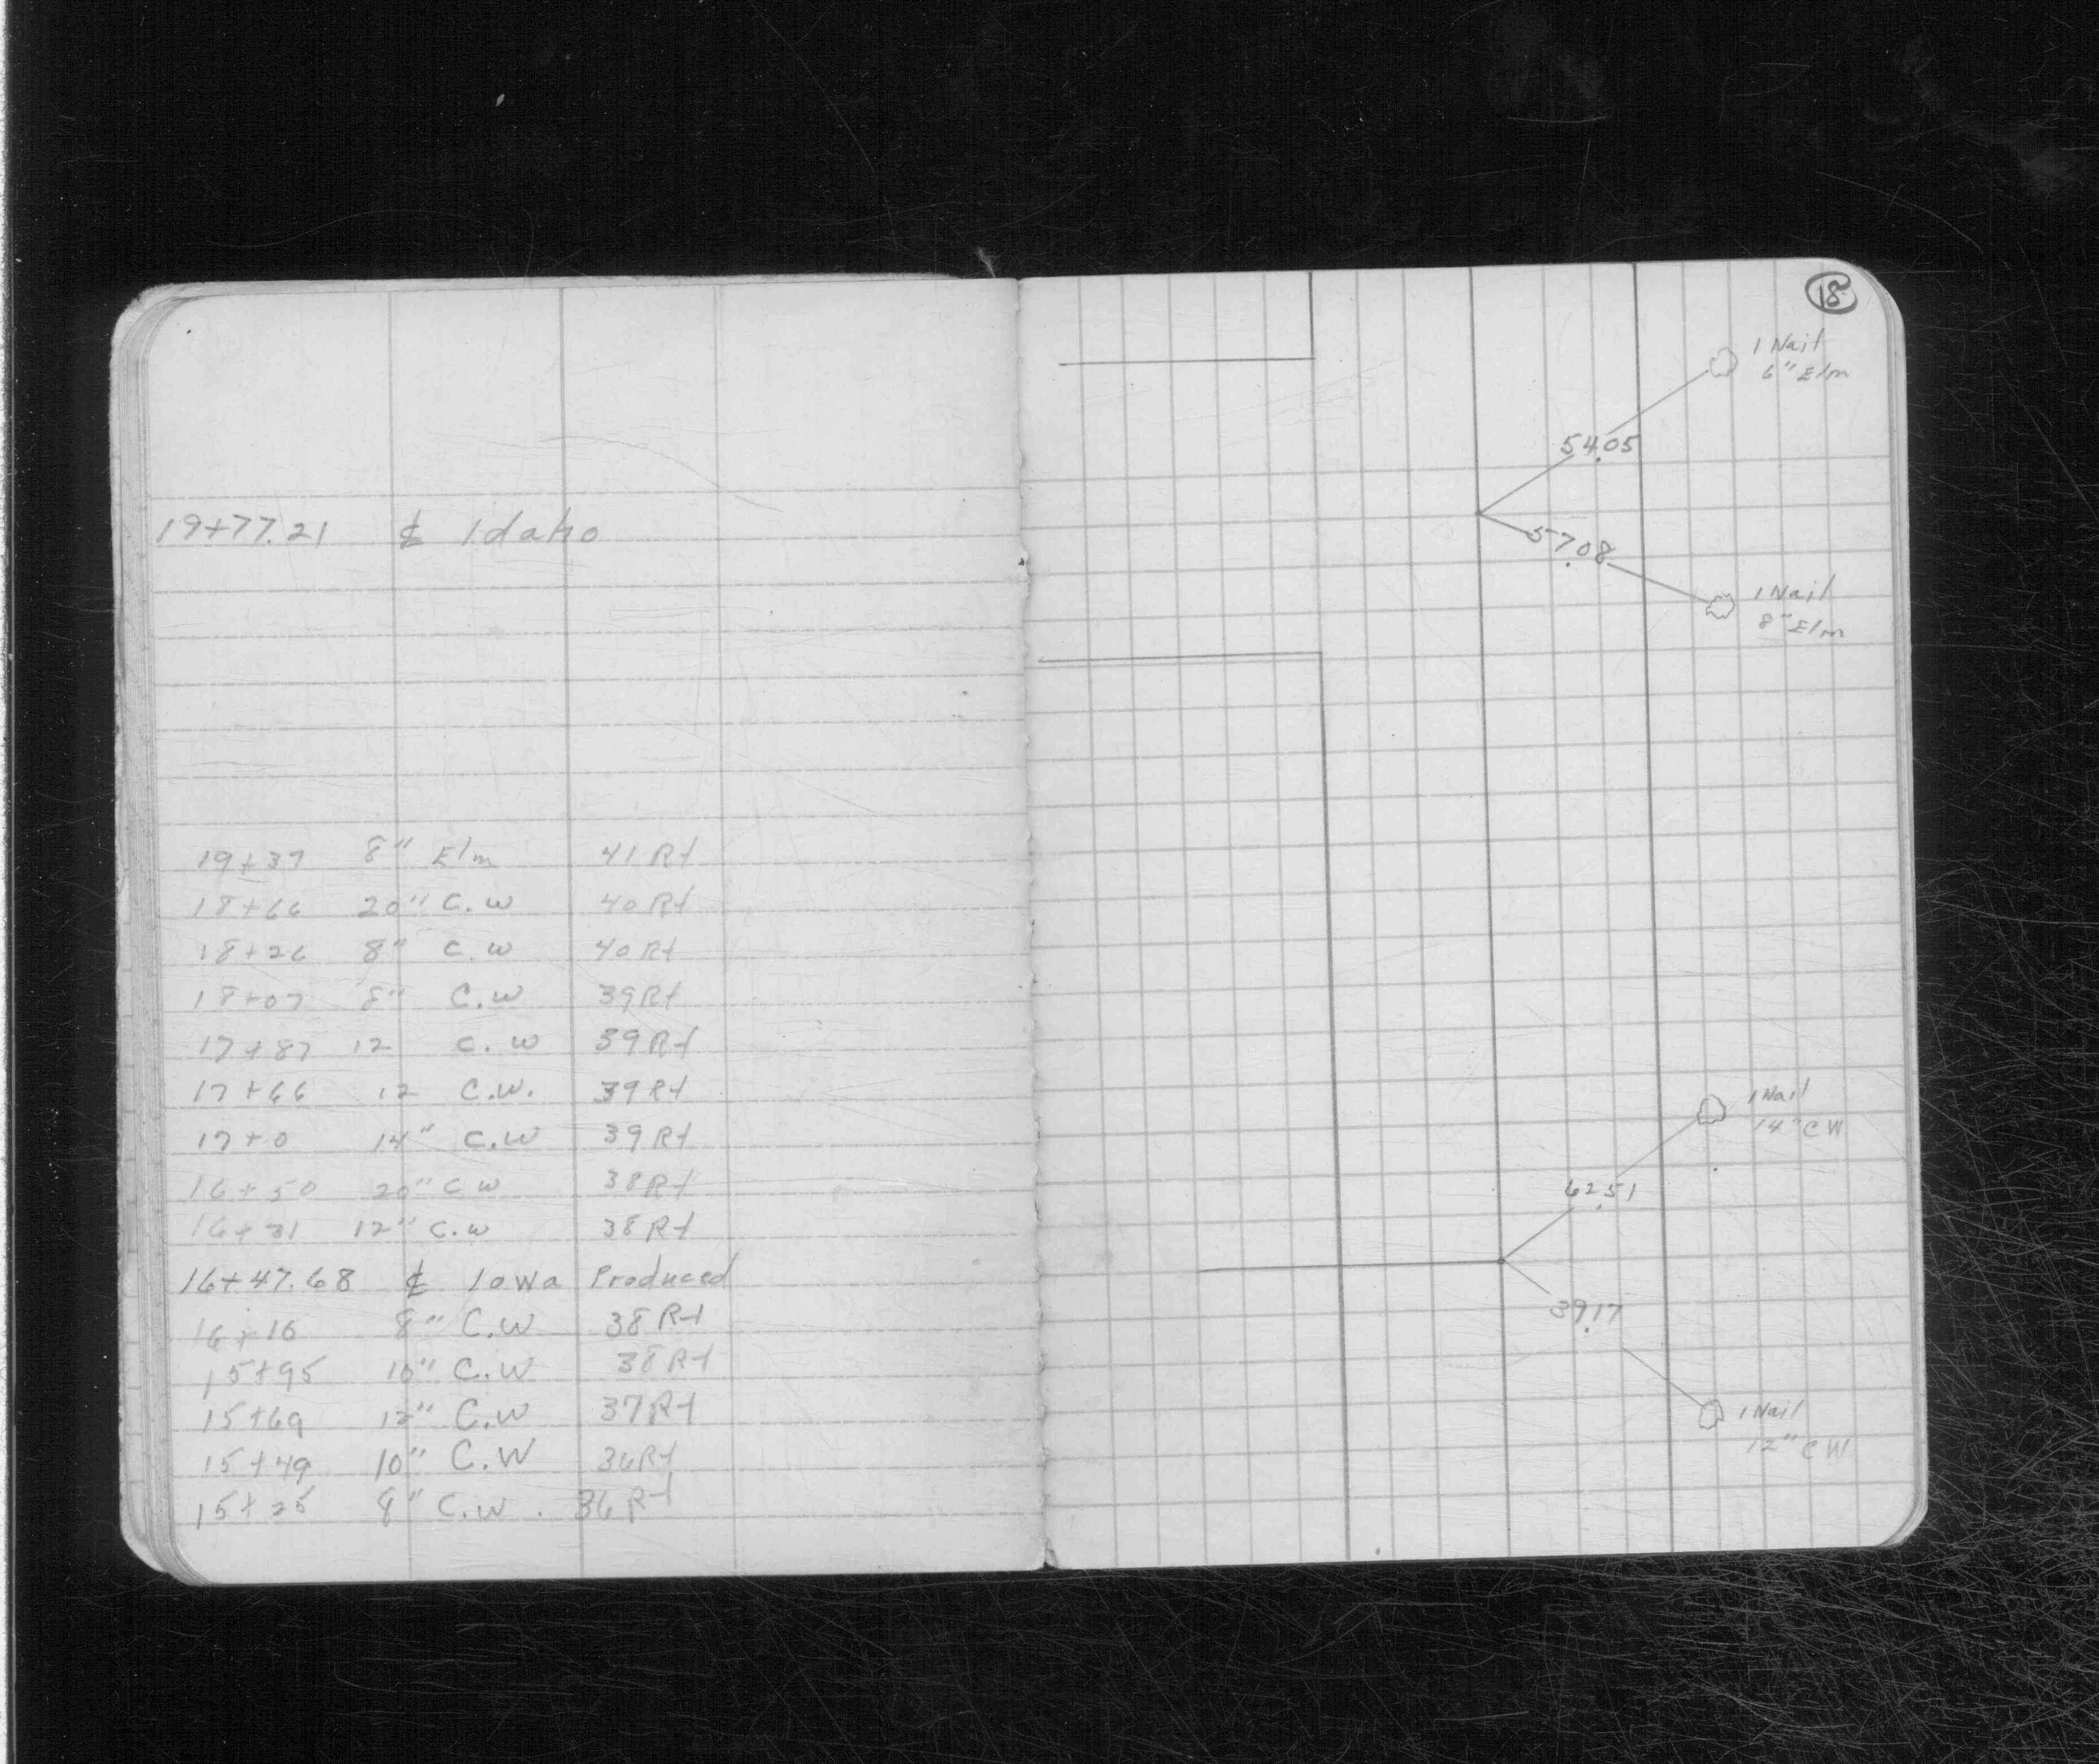 19+77.21 ℄ Idaho
19+37 8" Elm 41 Rt
18+66 20" C.W 40 Rt
18+26 8" C.W 40 Rt
18+07 8" C.W 39 Rt
17+87 12 C.W 39 Rt
17+66 12 C.W. 39 Rt
17+0 14" C.W 39 Rt
16+50 20" C W 38 Rt
16+31 12" C.W 38 Rt
16+47.68 ℄ Iowa Produced
16+16 8" C.W 38 Rt
15+95 10" C.W 38 Rt
15+69 12" C.W 37 Rt
15+49 10" C.W 36 Rt
15+25 8" C.W. 36 Rt
18
1 Nail
6" Elm
54.05
57.08
1 Nail
8" Elm
1 Nail
14" C W
62.51
39.17
1 Nail
12" C W